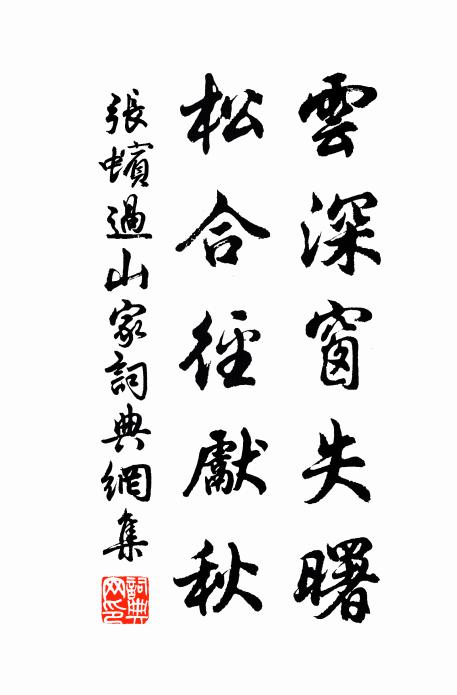 雲深窗失曙
松合徑獻秋
張蠙過山家詞典網集
詞典
网印